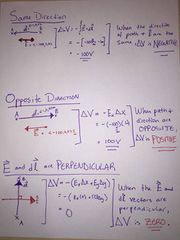 Same Direction
A B
ΔV = -∫E·dl
= -100V
When the direction
of path + E are the
Same, ΔV is NEGATIVE
Opposite Direction
A B
ΔV = -Eₓ Δx
= +100V
When path +
E direction are
OPPOSITE,
ΔV is
POSITIVE
E and dl are PERPENDICULAR
B
A
ΔV = -(EₓΔx + EyΔy)
= 0
When the E and
dl vectors are
perpendicular,
ΔV is
ZERO.